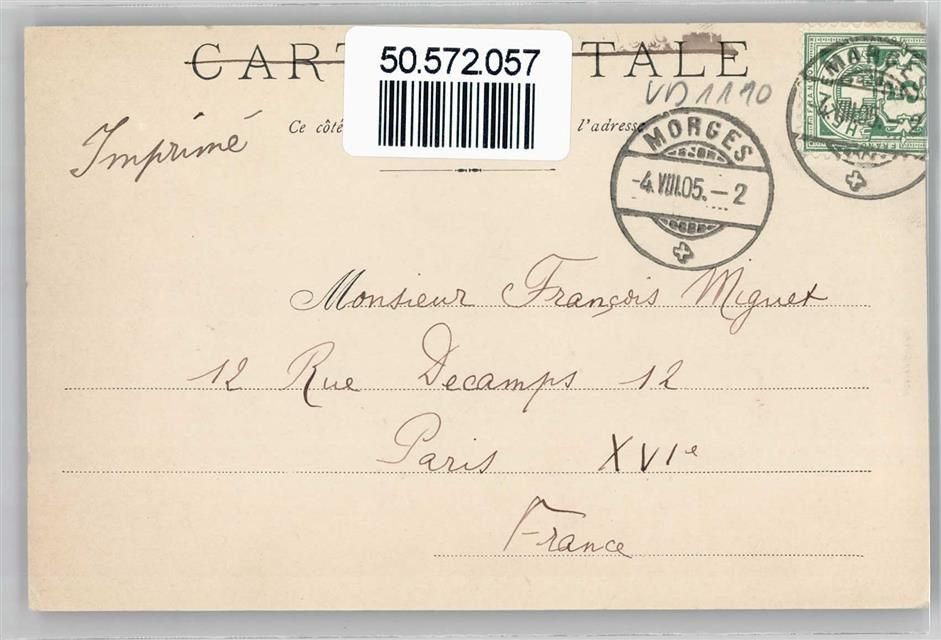 CART TALE
50.572.057
VD 1110
Ce côté l'adresse
Imprimé
MORGES
-4.VIII.05.-2
MORGES
4.VIII.05. 2
Monsieur François Miguet
12 Rue Decamps 12
Paris XVIe
France